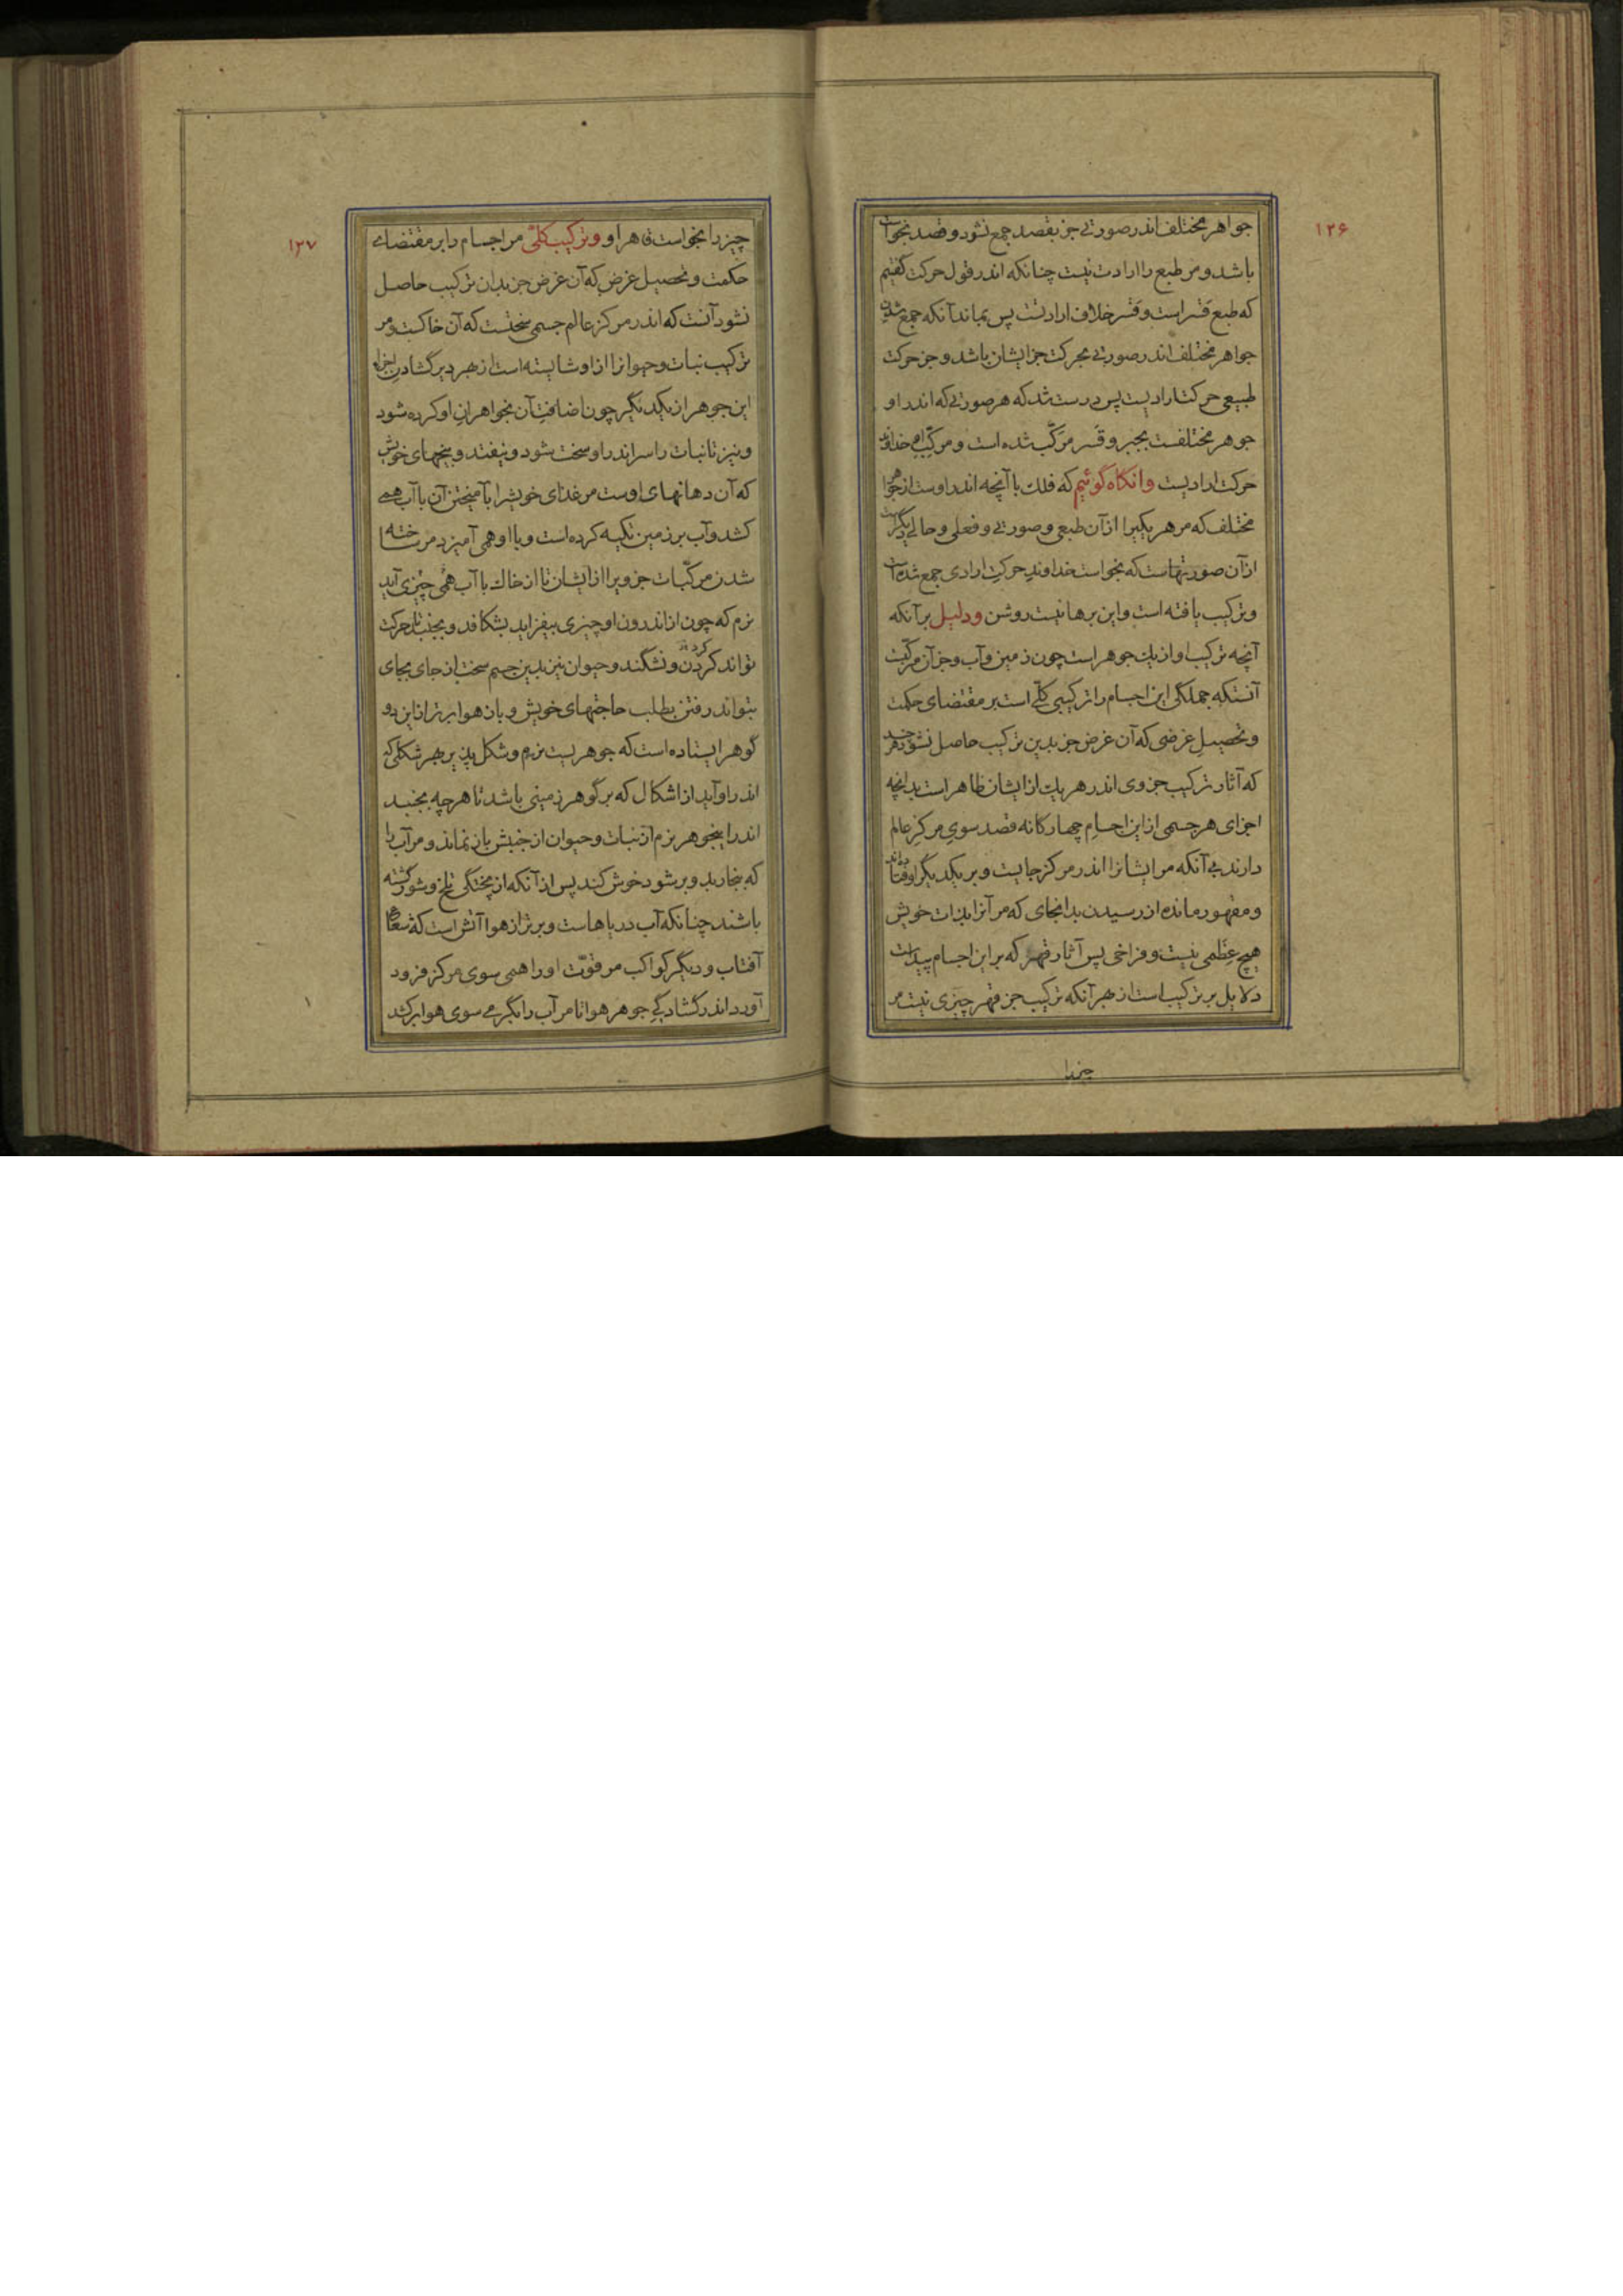 ۱۲۶
جواهر مختلف اندر صورتی جز بقصد جمع نشود و قصد بخواست
باشد و مر طبع را ارادت نیست چنانکه اندر قول حرکت گفتیم
که طبع قسر است و قسر خلاف ارادتست پس بماند آنکه جمع شدن
جواهر مختلف اندر صورتی بحرکت جز ایشان باشد و جز حرکت
طبیعی حرکت ارادیست پس درست شد که هر صورتی که اندر او
جوهر مختلفست بجبر و قسر مرکّب شده است و مرکّب او خداوند
حرکت ارادیست وانگاه گوئیم که فلک با آنچه اندر اوست از جواهر
مختلف که مر هر یکیرا از آن طبعی و صورتی و فعلی و حالی دیگر است
از آن صورتهاست که بخواست خداوندِ حرکتِ ارادی جمع شده است
و ترکیب یافته است و این برهانیست روشن و دلیل بر آنکه
آنچه ترکیب او از یک جوهر است چون زمین و آب و جز آن مرکّبست
آنستکه جملگی این اجسام را ترکیبی کلّی است بر مقتضای حکمت
و تحصیلِ غرضی که آن غرض جز بدین ترکیب حاصل نشود هر چند
که آثار ترکیب جزوی اندر هر یک از ایشان ظاهر است بدانچه
اجزای هر جسمی از این اجسامِ چهارگانه قصد سویِ مرکزِ عالم
دارند بی آنکه مر ایشانرا اندر مرکز جایست و بر یکدیگر اوفتاده‌اند
و مقهور مانده از رسیدن بدانجای که مر آنرا بذات خویش
هیچ عِظَمی نیست و فراخی پس آثار قهر که بر این اجسام پیداست
دلایل بر ترکیب است از بهر آنکه ترکیب جز قهر چیزی نیست مر
چیزرا
۱۲۷
چیز را بخواست قاهر او و ترکیب کلّی مر اجسام را بر مقتضای
حکمت و تحصیل غرض که آن غرض جز بدان ترکیب حاصل
نشود آنست که اندر مرکز عالم جسمی سختست که آن خاکست و مر
ترکیب نبات و حیوانرا از او شایسته است از بهر دیر گشادنِ اجزاء
این جوهر از یکدیگر چون اضافتِ آن بخواهرانِ او کرده شود
و نیز تا نبات را سر اندر او سخت بشود و نیفتد و بیخهای خویش
که آن دهانهای اوست مر غذای خویشرا بآمیختن آن با آب همی
کشد و آب بر زمین تکیه کرده است و با او همی آمیزد مر ساخته
شدن مرکّبات جزویرا از ایشان تا از خاک با آب همی چیزی آید
نرم که چون از اندرون او چیزی بیفزاید بشکافد و بجنبد تا حرکت
تواند کردن و نشکند و حیوان نیز بدین جسم سخت از جای بجای
بتواند رفتن بطلب حاجتهای خویش و باز هوا برتر از این دو
گوهر ایستاده است که جوهریست نرم و شکل پذیر بهر شکلی که
اندر او آید از اشکال که بر گوهر زمینی باشد تا هر چه بجنبد
اندر اینجوهر نرم از نبات و حیوان از جنبش باز نماند و مر آب را
که ببخار بدو برشود خوش کند پس از آنکه از پختگی تلخ و شور گشته
باشد چنانکه آب دریاهاست و برتر از هوا آتش است که شعاع
آفتاب و دیگر کواکب مر قوّت او را همی سوی مرکز فرود
آورد اندر گشادگیِ جوهر هوا تا مر آب را بگرمی سوی هوا برکشد